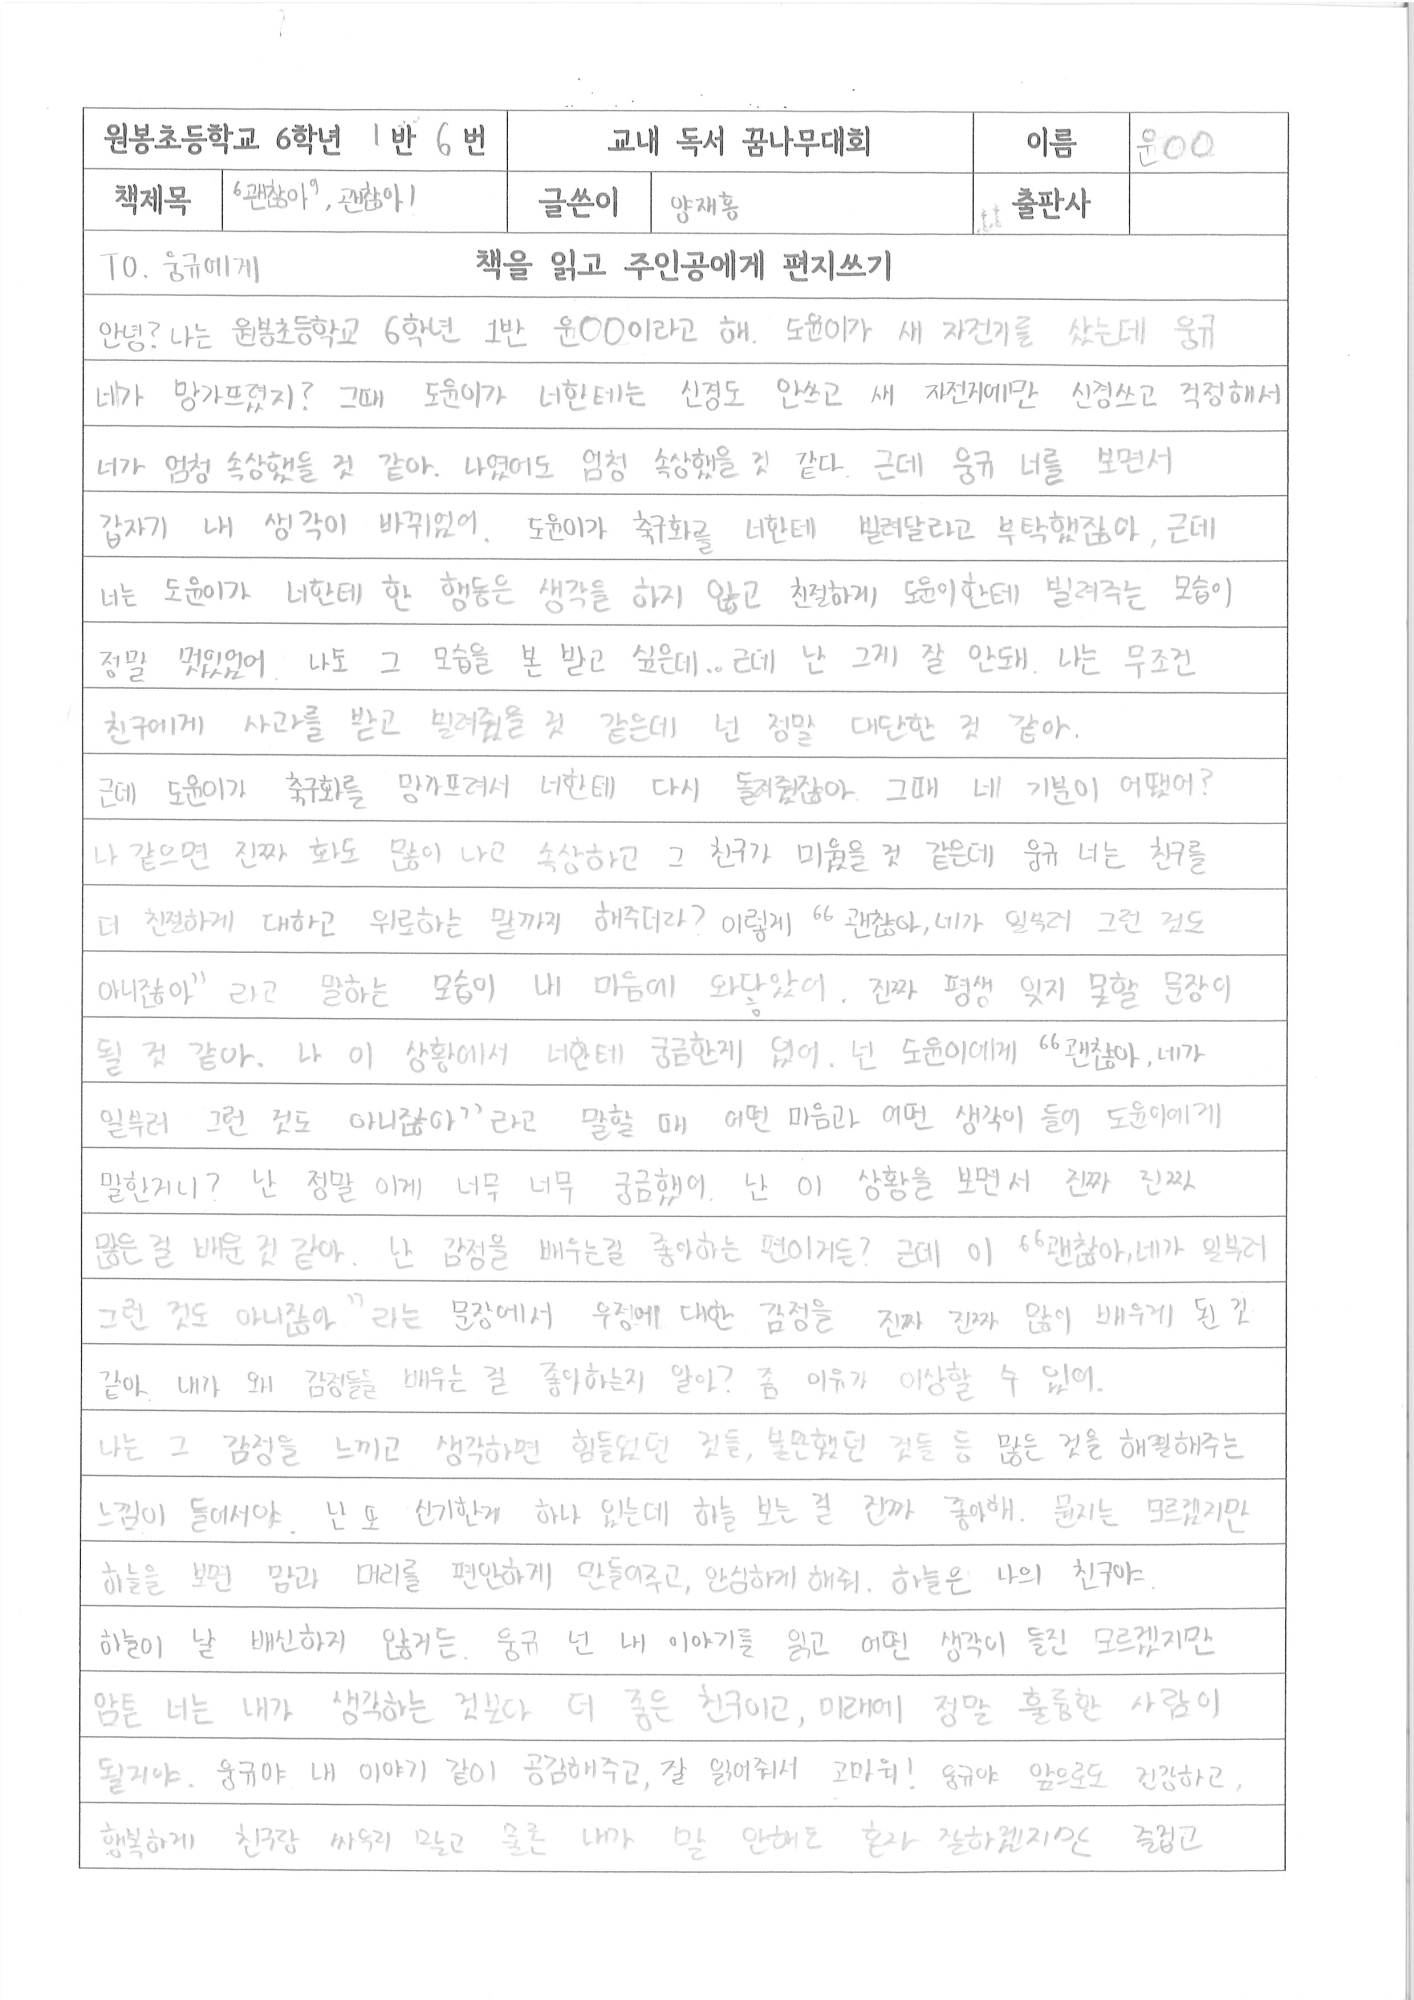 원봉초등학교 6학년 1반 6번 교내 독서 꿈나무대회 이름 윤OO
책제목 '괜찮아', 괜찮아! 글쓴이 양재홍 출판사
TO. 웅규에게 책을 읽고 주인공에게 편지쓰기
안녕? 나는 원봉초등학교 6학년 1반 윤OO이라고 해. 도윤이가 새 자전거를 샀는데 웅규
네가 망가뜨렸지? 그때 도윤이가 너한테는 신경도 안쓰고 새 자전거에만 신경쓰고 걱정해서
너가 엄청 속상했을 것 같아. 나였어도 엄청 속상했을 것 같다. 근데 웅규 너를 보면서
갑자기 내 생각이 바뀌었어. 도윤이가 축구화를 너한테 빌려달라고 부탁했잖아, 근데
너는 도윤이가 너한테 한 행동은 생각을 하지 않고 친절하게 도윤이한테 빌려주는 모습이
정말 멋있었어. 나도 그 모습을 본 받고 싶은데.. 근데 난 그게 잘 안돼. 나는 무조건
친구에게 사과를 받고 빌려줬을 것 같은데 넌 정말 대단한 것 같아.
근데 도윤이가 축구화를 망가뜨려서 너한테 다시 돌려줬잖아. 그때 네 기분이 어땠어?
나 같으면 진짜 화도 많이 나고 속상하고 그 친구가 미웠을 것 같은데 웅규 너는 친구를
더 친절하게 대하고 위로하는 말까지 해주더라? 이렇게 "괜찮아, 네가 일부러 그런 것도
아니잖아" 라고 말하는 모습이 내 마음에 와닿았어. 진짜 평생 잊지 못할 문장이
될 것 같아. 나 이 상황에서 너한테 궁금한게 있어. 넌 도윤이에게 "괜찮아, 네가
일부러 그런 것도 아니잖아" 라고 말할 때 어떤 마음과 어떤 생각이 들어 도윤이에게
말한거니? 난 정말 이게 너무 너무 궁금했어. 난 이 상황을 보면서 진짜 진짜
많은 걸 배운 것 같아. 난 감정을 배우는걸 좋아하는 편이거든? 근데 이 "괜찮아, 네가 일부러
그런 것도 아니잖아"라는 문장에서 우정에 대한 감정을 진짜 진짜 많이 배우게 된 것
같아. 내가 왜 감정들을 배우는 걸 좋아하는지 알아? 좀 이유가 이상할 수 있어.
나는 그 감정을 느끼고 생각하면 힘들었던 것들, 불안했던 것들 등 많은 것을 해결해주는
느낌이 들어서야. 난 또 신기한게 하나 있는데 하늘 보는 걸 진짜 좋아해. 뭔지는 모르겠지만
하늘을 보면 맘과 머리를 편안하게 만들어주고, 안심하게 해줘. 하늘은 나의 친구야.
하늘이 날 배신하지 않거든. 웅규 넌 내 이야기를 읽고 어떤 생각이 들진 모르겠지만
암튼 너는 내가 생각하는 것보다 더 좋은 친구이고, 미래에 정말 훌륭한 사람이
될거야. 웅규야 내 이야기 같이 공감해주고, 잘 읽어줘서 고마워! 웅규야 앞으로도 건강하고,
행복하게 친구랑 싸우지 말고 물론 내가 말 안해도 혼자 잘하겠지만 즐겁고